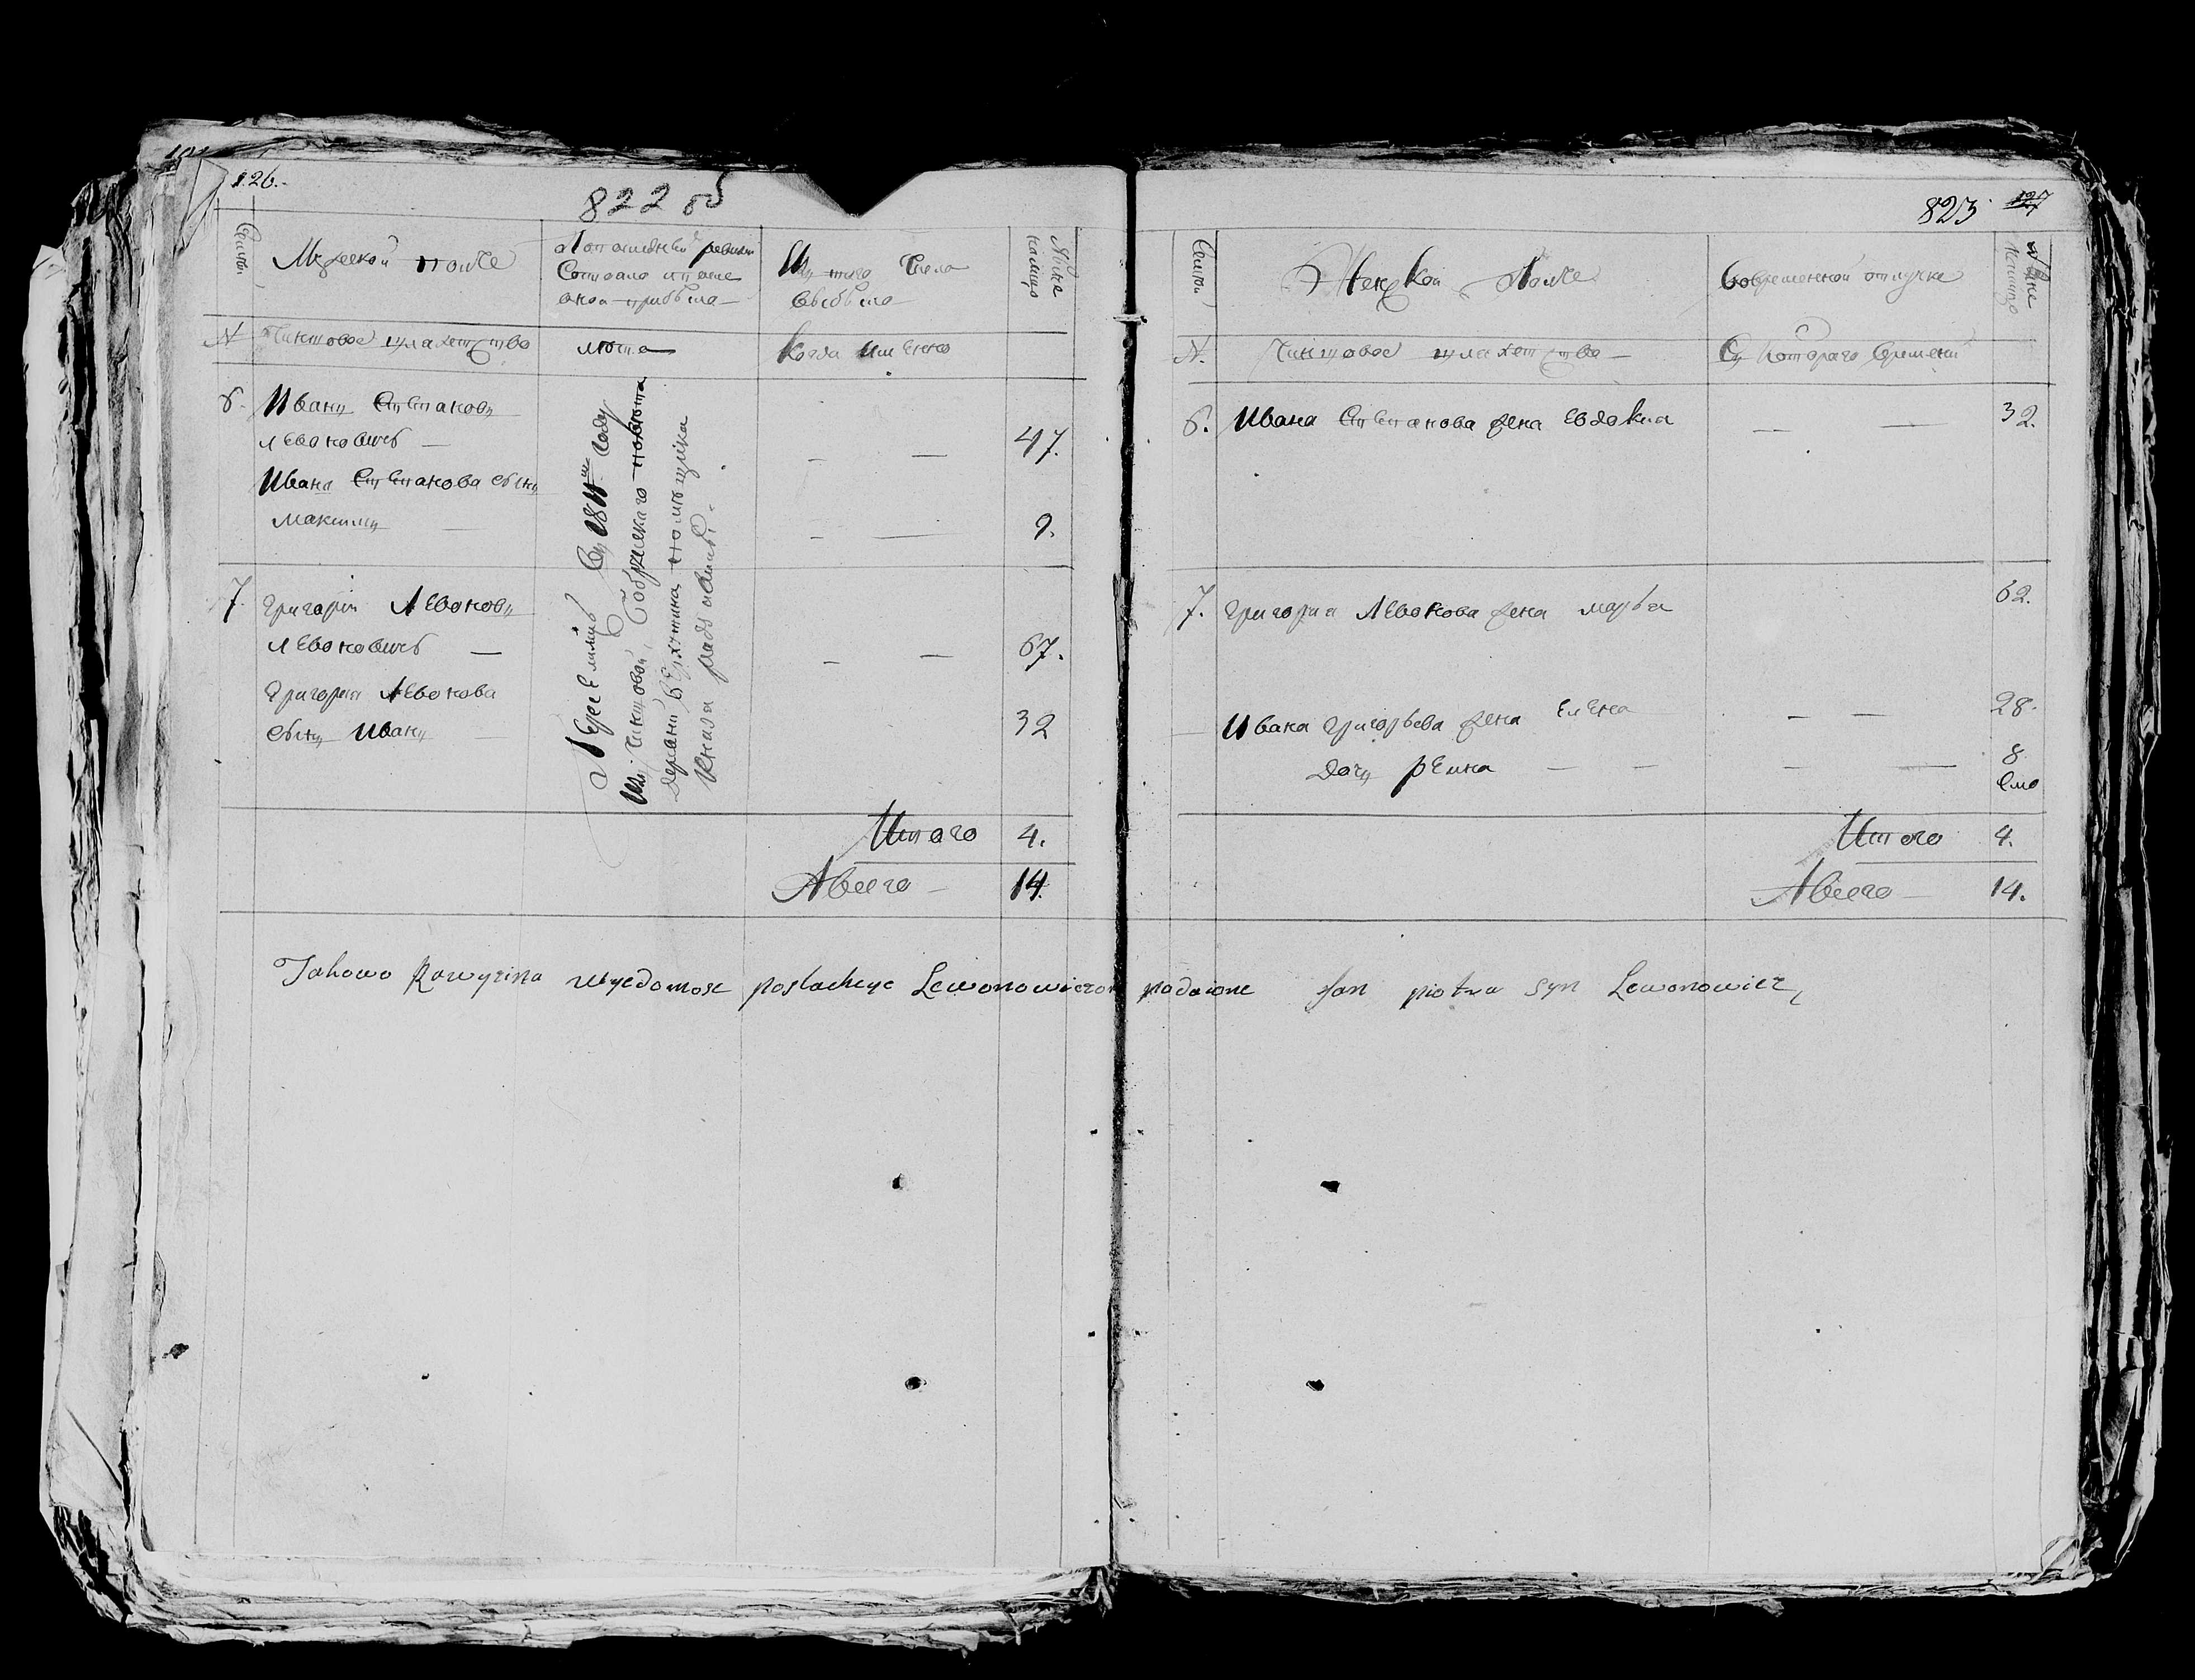 126.
822 об
Семьи
Мужской полъ
По последней ревизии
Состояло и после
оной прибыло
Изъ того числа
выбыло
Ныне
налицо
№
Чиншовое шляхетство
люта
Когда именно
6.
Иванъ Степановъ
Левоновичь
47.
Ивана Степанова сынъ
Максимъ
9.
7.
Григорій Левоновъ
Левоновичь
67.
Григорія Левонова
сынъ Иванъ
32
Переселились Съ 1811го Году
Изъ Чиншовой, Бобруйскаго повѣта
деревни помѣщика
Князя радзивила.
Итого 4.
А всего 14.
823 127
Семьи
Женской Полъ
Во временной отлучке
Ныне
налицо
№.
Чиншовое шляхетство
Съ Котораго Времени
6.
Ивана Степанова жена Евдокиа
32.
7.
Григория Левонова жена марья
62.
Ивана Григорьева жена Елена
28.
дочъ
8
Итого 4.
А всего 14.
Jakowo Rewyzina wyedomosc poslachcyc Lewonowiczow podaione Jan piotra syn Lewonowicz